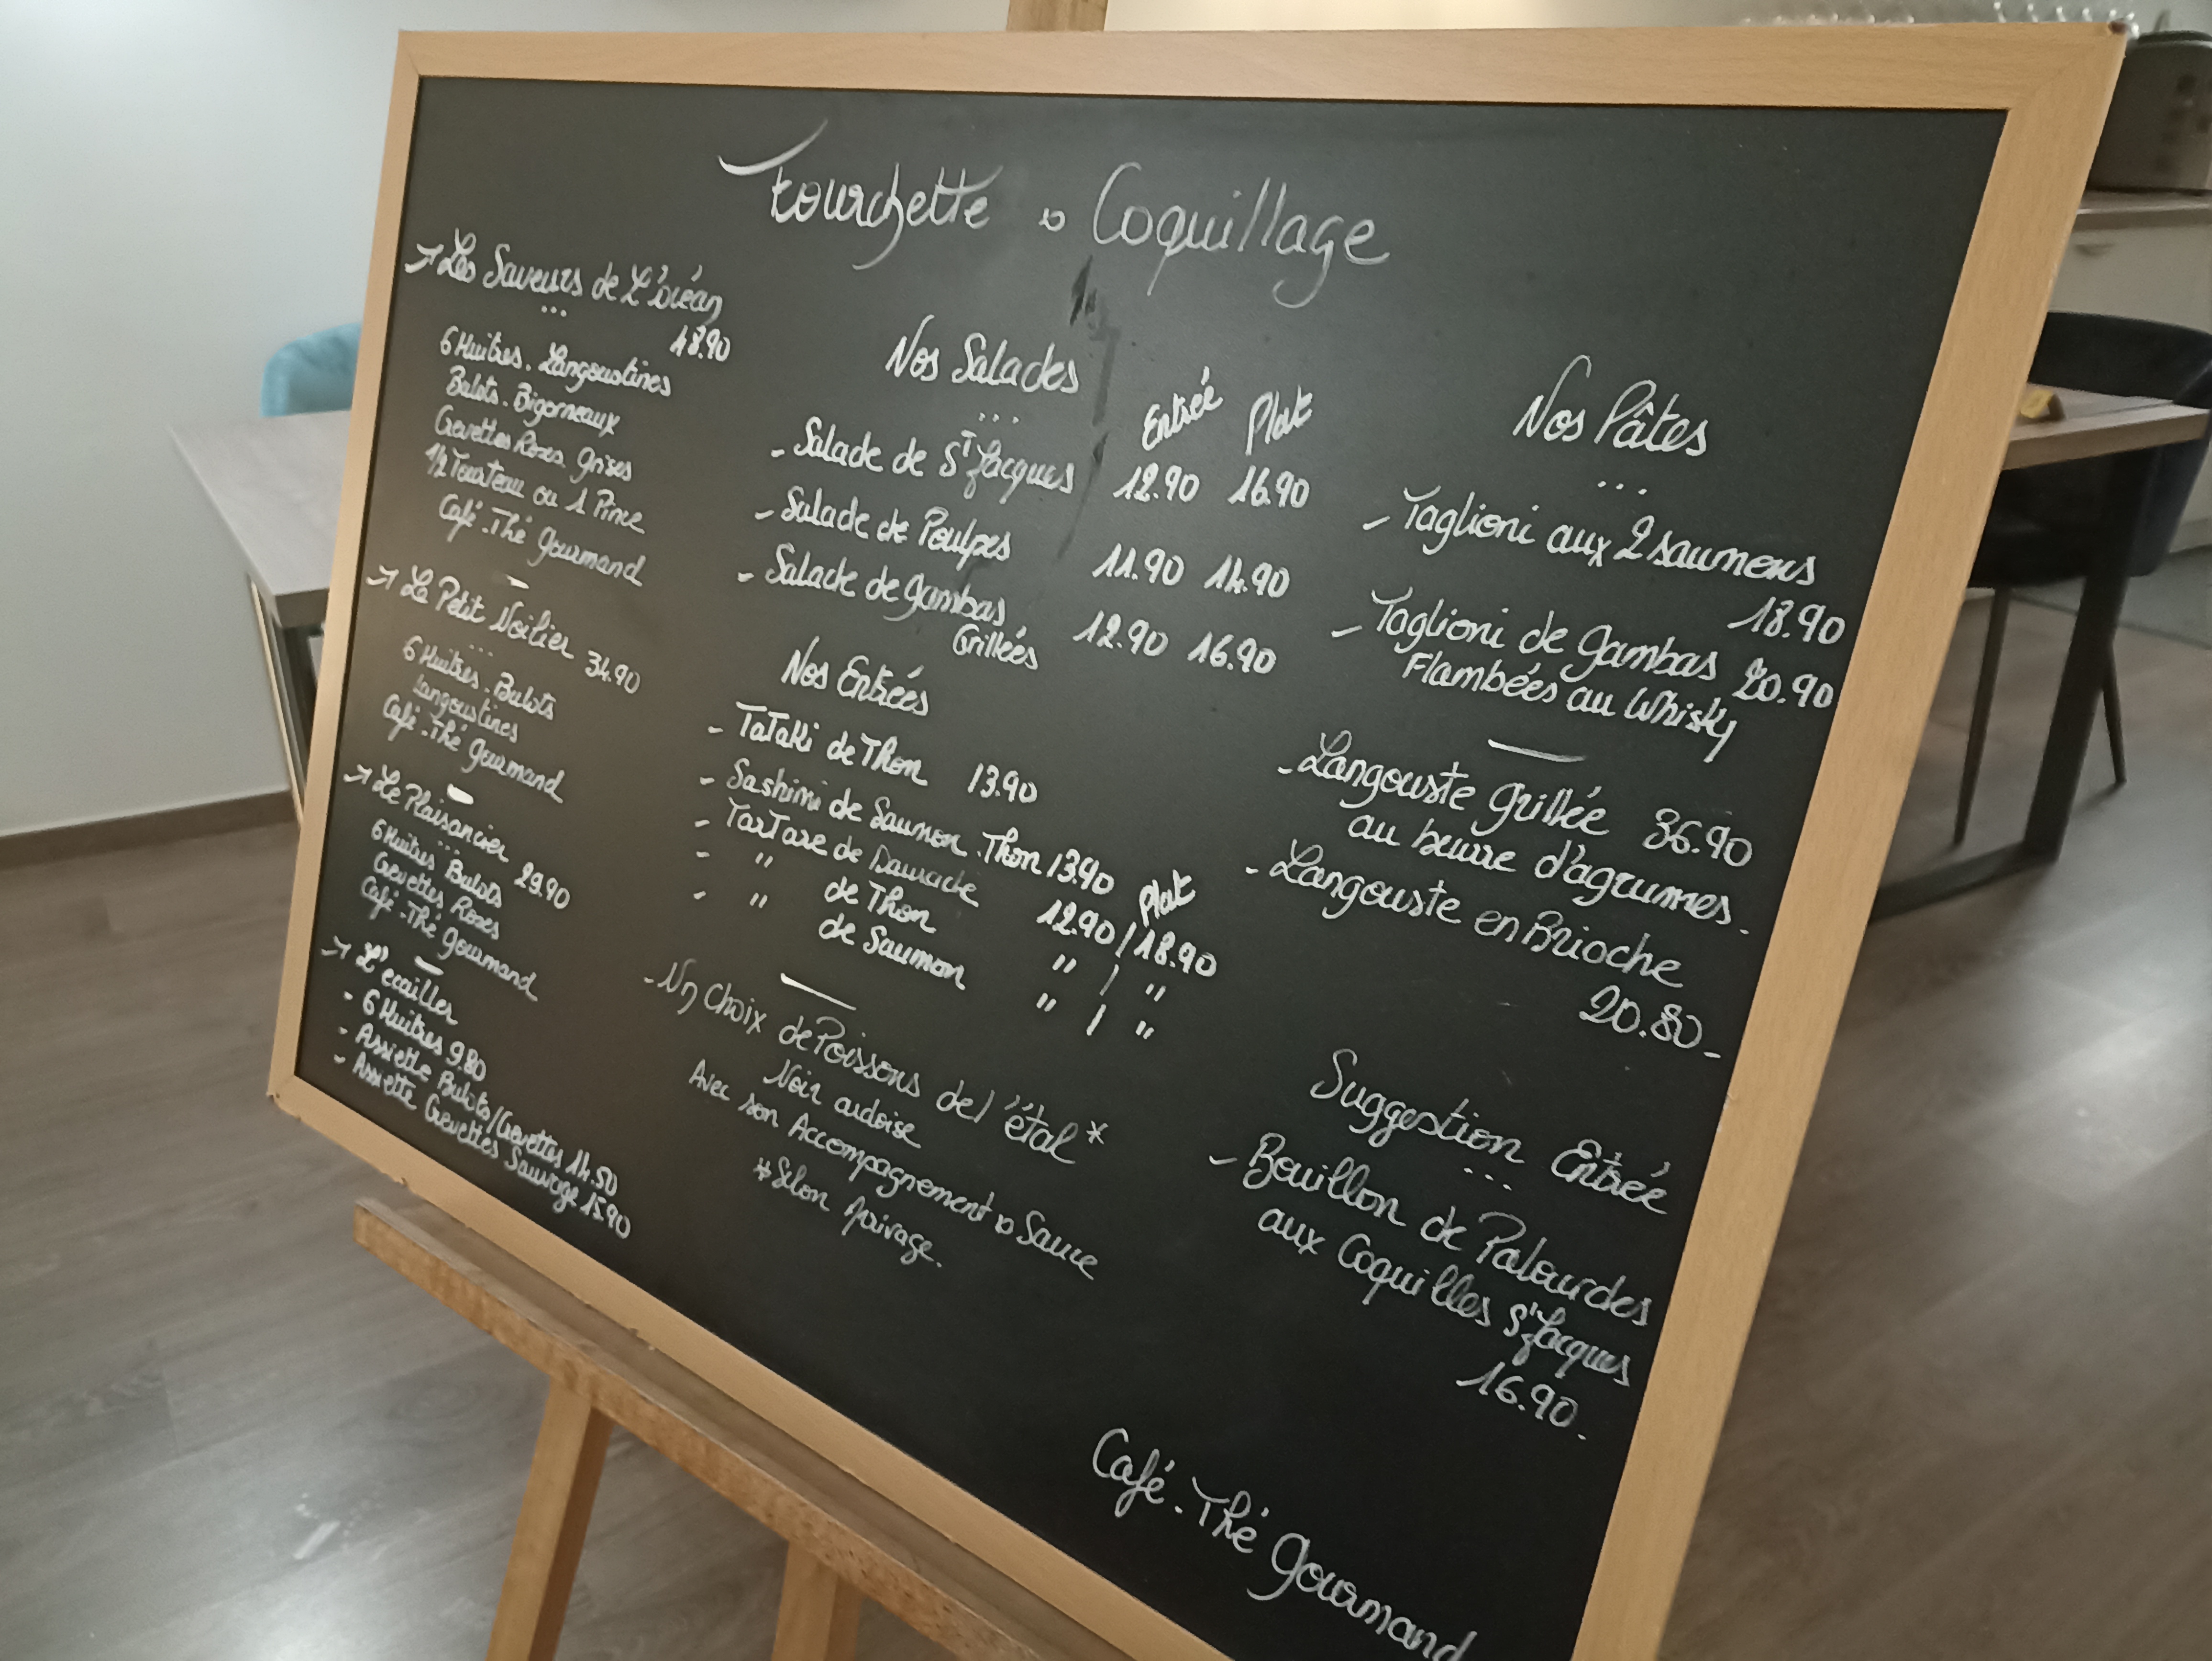 Fourchette & Coquillage
→ Les Saveurs de L'océan
...
48.90
6 Huitres. Langoustines
Bulots. Bigorneaux
Crevettes Roses grises
1/2 Tourteau ou 1 Pince
Café. Thé gourmand
→ Le Petit Voilier 34.90
...
6 Huitres. Bulots
Langoustines
Café. Thé gourmand
→ Le Plaisancier 29.90
...
6 Huitres Bulots
Crevettes Roses
Café. Thé gourmand
→ L'ecailler
- 6 Huitres 9.80
- Assiette Bulots/Crevettes 14.50
- Assiette Crevettes Sauvage 15.90
Nos Salades
...
Entrée Plat
- Salade de St Jacques 12.90 16.90
- Salade de Poulpes 11.90 14.90
- Salade de gambas 12.90 16.90
Grillées
Nos Entrées
- Tataki de Thon 13.90
- Sashimi de Saumon. Thon 13.90
Plat
- Tartare de Daurade 12.90 / 18.90
- " de Thon " / "
- " de Saumon " / "
- Un choix de Poissons de l'étal *
Voir ardoise
Avec son Accompagnement & Sauce
* Selon Arrivage.
Nos Pâtes
...
- Taglioni aux 2 saumons
18.90
- Taglioni de gambas 20.90
Flambées au Whisky
- Langouste grillée 36.90
au beurre d'agrumes.
- Langouste en Brioche
20.80-
Suggestion Entrée
...
- Bouillon de Palourdes
aux Coquilles St Jacques
16.90-
Café. Thé Gourmand